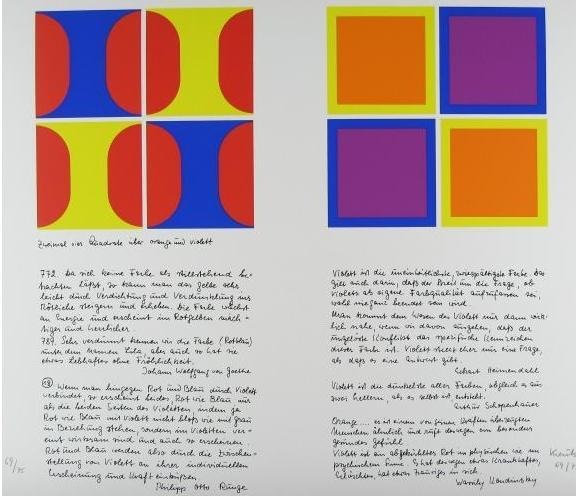 Zweimal vier Quadrate über orange und violett
772. Da sich keine Farbe als stillstehend be-
trachten läßt, so kann man das Gelbe sehr
leicht durch Verdichtung und Verdunklung ins
Rötliche steigern und erheben. Die Farbe wächst
an Energie und erscheint im Rotgelben mäch-
tiger und herrlicher.
789. Sehr verdünnt kennen wir die Farbe (Rotblau)
unter dem Namen Lila, aber auch so hat sie
etwas Lebhaftes ohne Fröhlichkeit.
Johann Wolfgang von Goethe
Wenn man hingegen Rot und Blau durch Violett
verbindet, so erscheint beides, Rot wie Blau nur
als die beiden Seiten des Violetten indem ja
Rot wie Blau mit Violett nicht bloß wie mit Grau
in Beziehung stehen, sondern im Violetten ver-
eint wirksam sind und auch so erscheinen.
Rot und Blau werden also durch die
stellung von Violett an ihrer individuellen
Erscheinung und Kraft einbüßen
Philipp Otto Runge
Violett ist die uneinheitlichste, zwiespältigste Farbe. Das
gilt auch darin, daß der Streit um die Frage, ob
Violett als eigene Farbqualität aufzufassen sei,
wohl niemals beendet sein wird
Man kommt dem Wesen des Violett nur dann wirk-
lich nahe, wenn wir davon ausgehen, daß der
ungelöste Konflikt das spezifische Kennzeichen
dieser Farbe ist. Violett stellt eher eine Frage,
als daß es eine Antwort gibt
Eckart Heimendahl
Violett ist die dunkelste aller Farben, obgleich es aus
zwei hellern, als es selbst ist, entsteht.
Arthur Schopenhauer
Orange.... es ist einem von seinen Kräften überzeugten
Menschen ähnlich und ruft deswegen ein besonders
gesundes Gefühl
Violett ist ein abgekühltes Rot im physischen wie im
psychischen Sinne. Es hat deswegen etwas Krankhaftes,
Erlöschtes, hat etwas Trauriges in sich.
Wassily Kandinsky
69/75